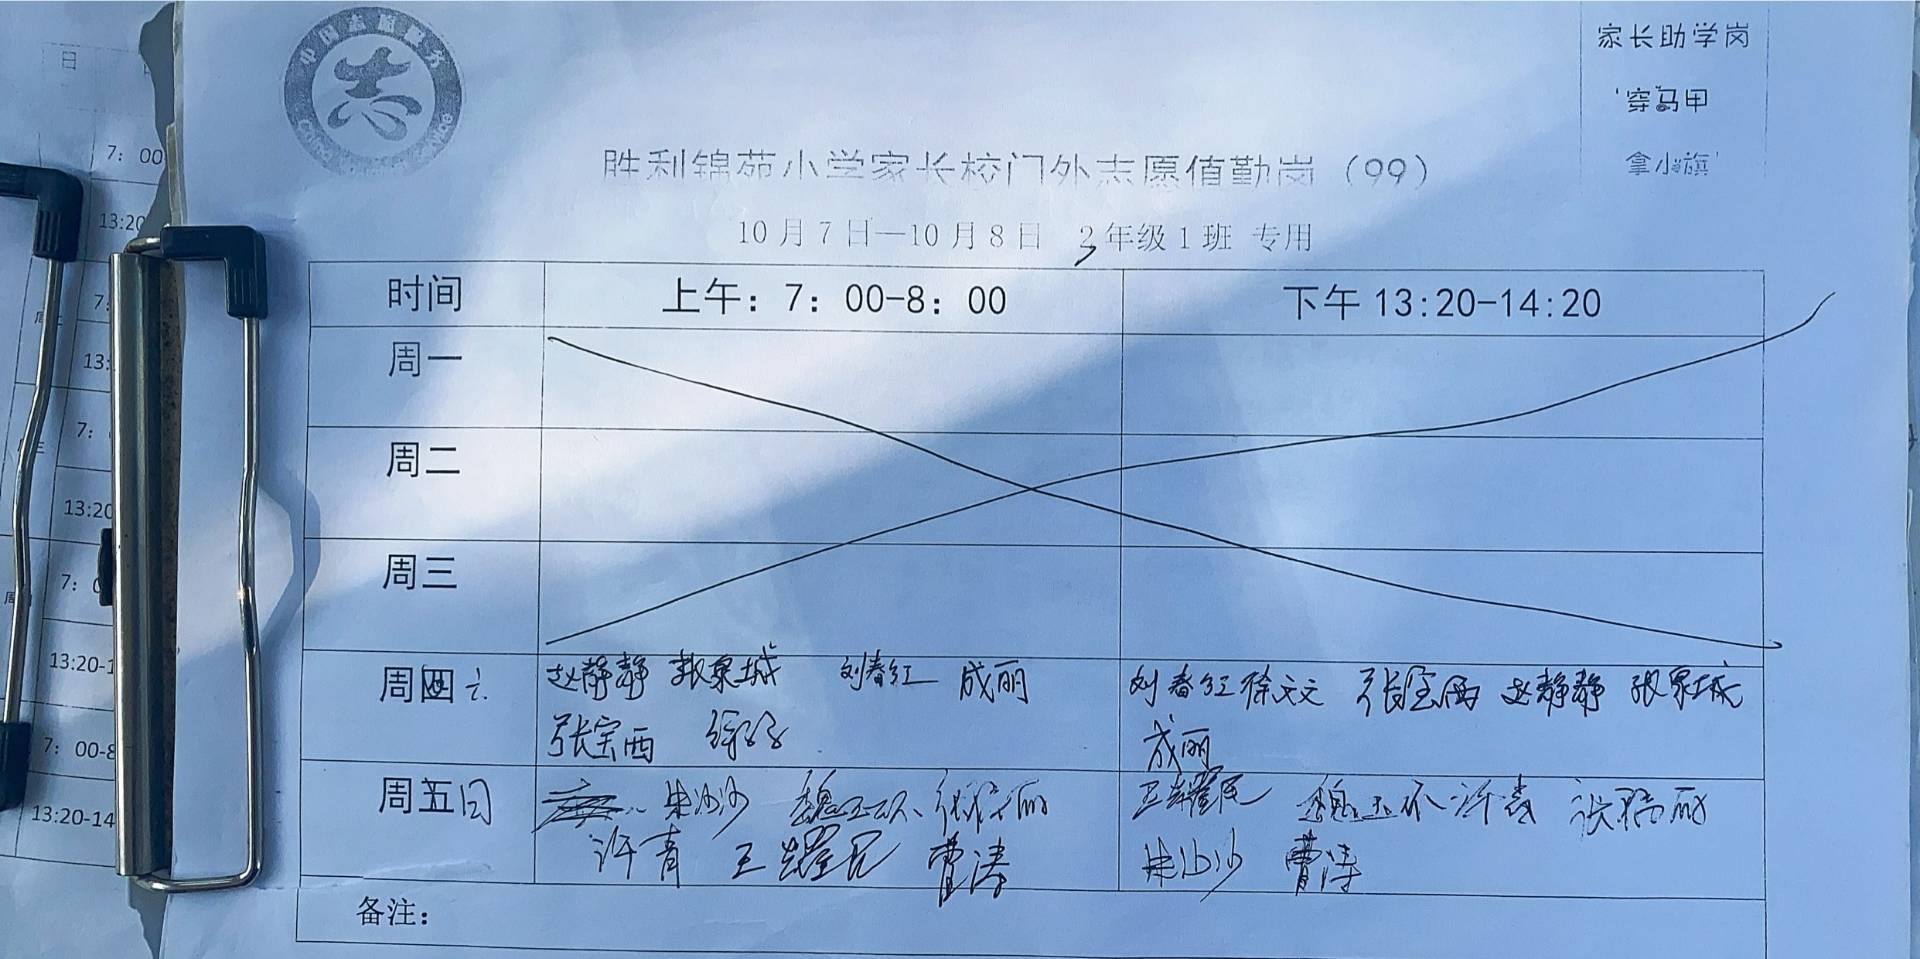 中国志愿服务
志
家长助学岗
'穿马甲
拿小旗'
胜利锦苑小学家长校门外志愿值勤岗（99）
10月7日—10月8日 2年级1班 专用
时间 上午：7：00-8：00 下午13:20-14:20
周一
周二
周三
周四六 赵静静 张泉城 刘春红 成丽 刘春红 徐文文 张宝西 赵静静 张泉城
张宝西 成丽
周五日 朱沙沙 王耀民 许青
许青 王耀民 曹涛 朱沙沙 曹涛
备注：
日
7：00
13:20
7：
13:
7：
13:20
7：0
13:20-1
7：00-8
13:20-14